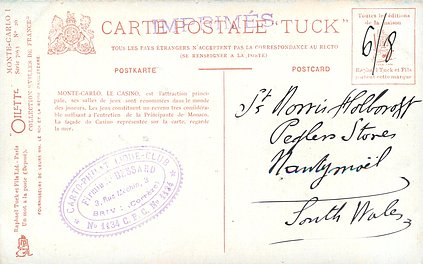 IMPRIMÉS
CARTE POSTALE "TUCK"
TOUS LES PAYS ÉTRANGERS N'ACCEPTENT PAS LA CORRESPONDANCE AU RECTO
(SE RENSEIGNER A LA POSTE)
POSTKARTE
POSTCARD
Toutes les éditions
de la maison
Raphael Tuck et Fils
portent cette marque
6/8
MONTE-CARLO I
Série 795A No 20
COLLECTION "VILLES DE FRANCE"
"OILETTE"
Raphael Tuck et Fils Ltd.-Paris
(Un mot à la poste (Déposé).
FOURNISSEURS DE
MONTE-CARLO. LE CASINO, est l'attraction princi-
pale, ses salles de jeux sont renommées dans le monde
des joueurs. Les jeux constituent un revenu très considérable
utilisant à l'entretien de la Principauté de Monaco.
La façade du Casino représentée sur la carte, regarde
la mer.
CARTOPHILE-CLUB
BESSARD
3, Rue
BRIVE (Corrèze)
No 1434 C. P. C. No 1434
St. Norris Holboroft
Peglers Stores
Nantymoel
South Wales